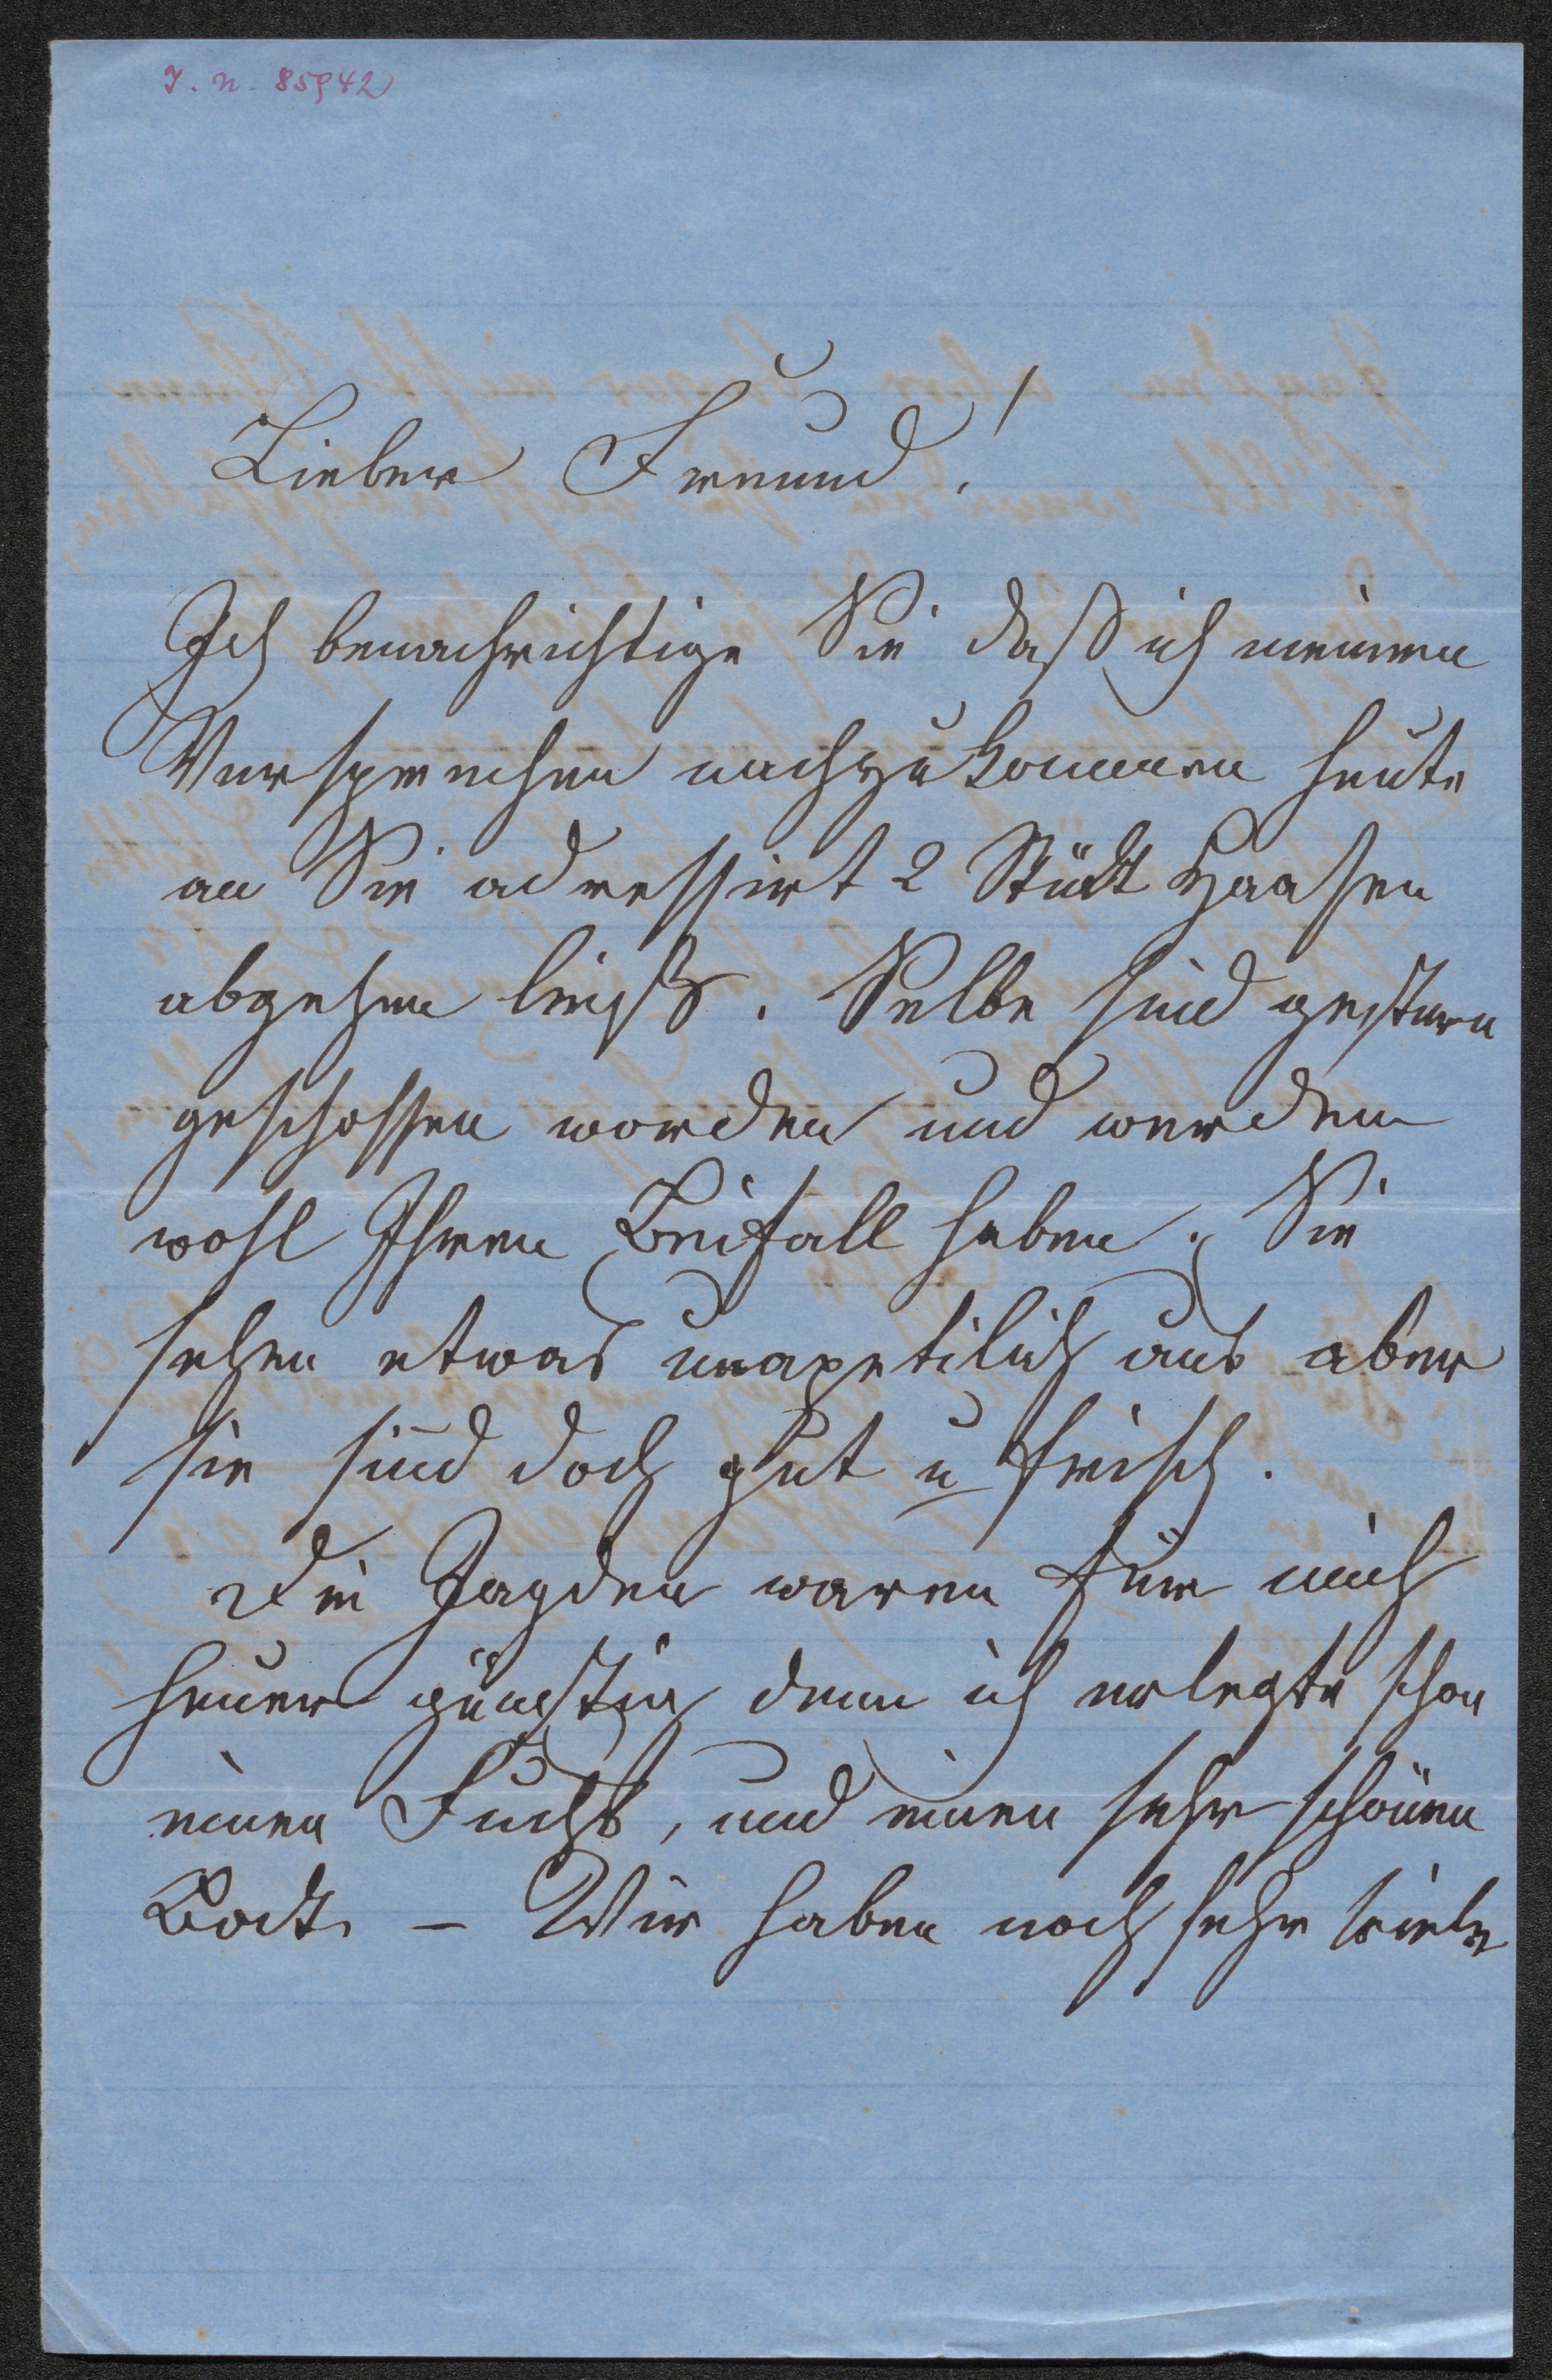 I. N. 85942
Lieber Freund!
Ich benachrichtige Sie daß ich meinem
Versprechen nachzukommen heute
an Sie adressirt 2 Stück Haasen
abgehen ließ. Selbe sind gestern
geschossen worden und werden
wohl Ihren Beifall haben. Sie
sehen etwas unapetitlich aus aber
sie sind doch gut u frisch.
Die Jagden waren für mich
heuer günstig denn ich erlegte schon
einen Fuchs, und einen sehr schönen
Bock. – Wir haben noch sehr viele